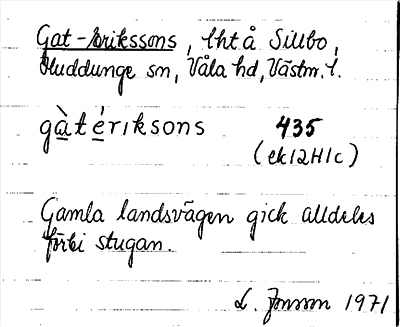 Gat-Erikssons, lht å Sillbo,
Huddunge sn, Våla hd, Västm. l.
gàtériksons 435
(ek12H1c)
Gamla landsvägen gick alldeles
förbi stugan.
L. Jonsson 1971